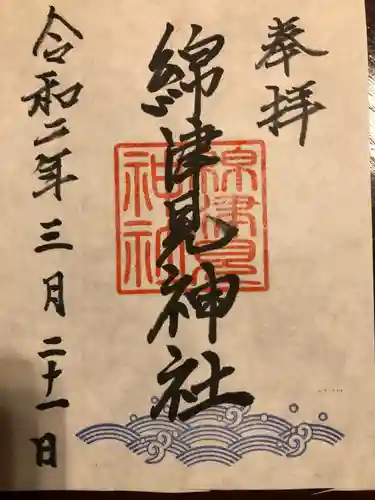 奉拝
綿津見神社
綿津見神社
令和二年三月二十一日